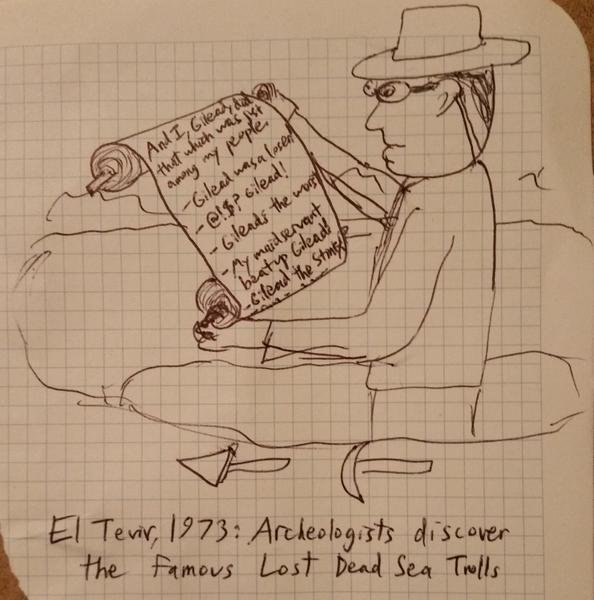 And I, Gilead, did
that which was just
among my people.
- Gilead was a loser!
- @!$? Gilead!
- Gileads the worst
- My maidservant
beat up Gilead!
- Gilead the Stinks!
El Tevir, 1973: Archeologists discover
the Famous Lost Dead Sea Trolls